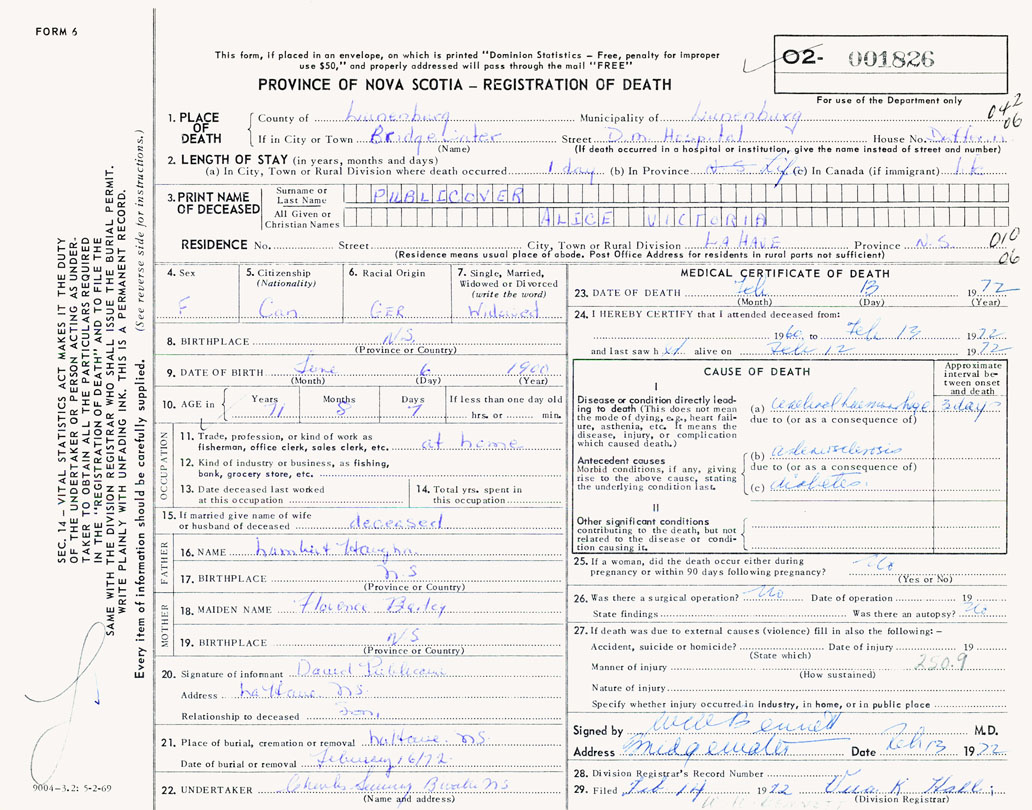 FORM 6
This form, if placed in an envelope, on which is printed "Dominion Statistics – Free, penalty for improper
use $50," and properly addressed will pass through the mail "FREE"
PROVINCE OF NOVA SCOTIA – REGISTRATION OF DEATH
02- 001826
For use of the Department only
042
06
1. PLACE OF DEATH
County of Lunenburg Municipality of Lunenburg
If in City or Town Bridgewater Street D.m. Hospital House No.
(Name) (If death occurred in a hospital or institution, give the name instead of street and number)
2. LENGTH OF STAY (in years, months and days)
(a) In City, Town or Rural Division where death occurred 1 day (b) In Province Life (c) In Canada (if immigrant)
3. PRINT NAME OF DECEASED
Surname or Last Name PUBLICOVER
All Given or Christian Names ALICE VICTORIA
RESIDENCE No. Street City, Town or Rural Division LaHAVE Province N.S.
(Residence means usual place of abode. Post Office Address for residents in rural parts not sufficient)
010
06
4. Sex F
5. Citizenship (Nationality) Can
6. Racial Origin GER
7. Single, Married, Widowed or Divorced (write the word) Widowed
8. BIRTHPLACE N.S.
(Province or Country)
9. DATE OF BIRTH June 6 1900
(Month) (Day) (Year)
10. AGE in Years 71 Months 8 Days 7 If less than one day old hrs. or min.
OCCUPATION
11. Trade, profession, or kind of work as fisherman, office clerk, sales clerk, etc. at home
12. Kind of industry or business, as fishing, bank, grocery store, etc.
13. Date deceased last worked at this occupation
14. Total yrs. spent in this occupation
15. If married give name of wife or husband of deceased deceased
FATHER
16. NAME Lambert
17. BIRTHPLACE N S
(Province or Country)
MOTHER
18. MAIDEN NAME Florence
19. BIRTHPLACE N/S
(Province or Country)
20. Signature of informant David Publicover
Address LaHave NS
Relationship to deceased Son
21. Place of burial, cremation or removal LaHave NS
Date of burial or removal February 16/72
22. UNDERTAKER
(Name and address)
MEDICAL CERTIFICATE OF DEATH
23. DATE OF DEATH Feb 13 1972
(Month) (Day) (Year)
24. I HEREBY CERTIFY that I attended deceased from:
1960 to Feb 13 1972
and last saw h alive on Feb 12 1972
CAUSE OF DEATH
Approximate interval between onset and death
I
Disease or condition directly leading to death (This does not mean the mode of dying, e.g., heart failure, asthenia, etc. It means the disease, injury, or complication which caused death.)
(a) cerebral haemorrhage 3 days
due to (or as a consequence of)
Antecedent causes
Morbid conditions, if any, giving rise to the above cause, stating the underlying condition last.
(b)
due to (or as a consequence of)
(c) diabetes
II
Other significant conditions contributing to the death, but not related to the disease or condition causing it.
25. If a woman, did the death occur either during pregnancy or within 90 days following pregnancy? No
(Yes or No)
26. Was there a surgical operation? No Date of operation 19
State findings Was there an autopsy? No
27. If death was due to external causes (violence) fill in also the following: –
Accident, suicide or homicide? Date of injury 19
(State which)
Manner of injury 250.9
(How sustained)
Nature of injury
Specify whether injury occurred in industry, in home, or in public place
Signed by Bennett M.D.
Address Bridgewater Date Feb 13 1972
28. Division Registrar's Record Number
29. Filed Feb 14 1972
(Division Registrar)
SEC. 14 – VITAL STATISTICS ACT MAKES IT THE DUTY
OF THE UNDERTAKER OR PERSON ACTING AS UNDERTAKER
TO OBTAIN ALL THE PARTICULARS REQUIRED
IN THE "REGISTRATION OF DEATH" AND TO FILE THE
SAME WITH THE DIVISION REGISTRAR WHO SHALL ISSUE THE BURIAL PERMIT.
WRITE PLAINLY WITH UNFADING INK. THIS IS A PERMANENT RECORD.
Every item of information should be carefully supplied. (See reverse side for instructions.)
9004-3.2: 5-2-69